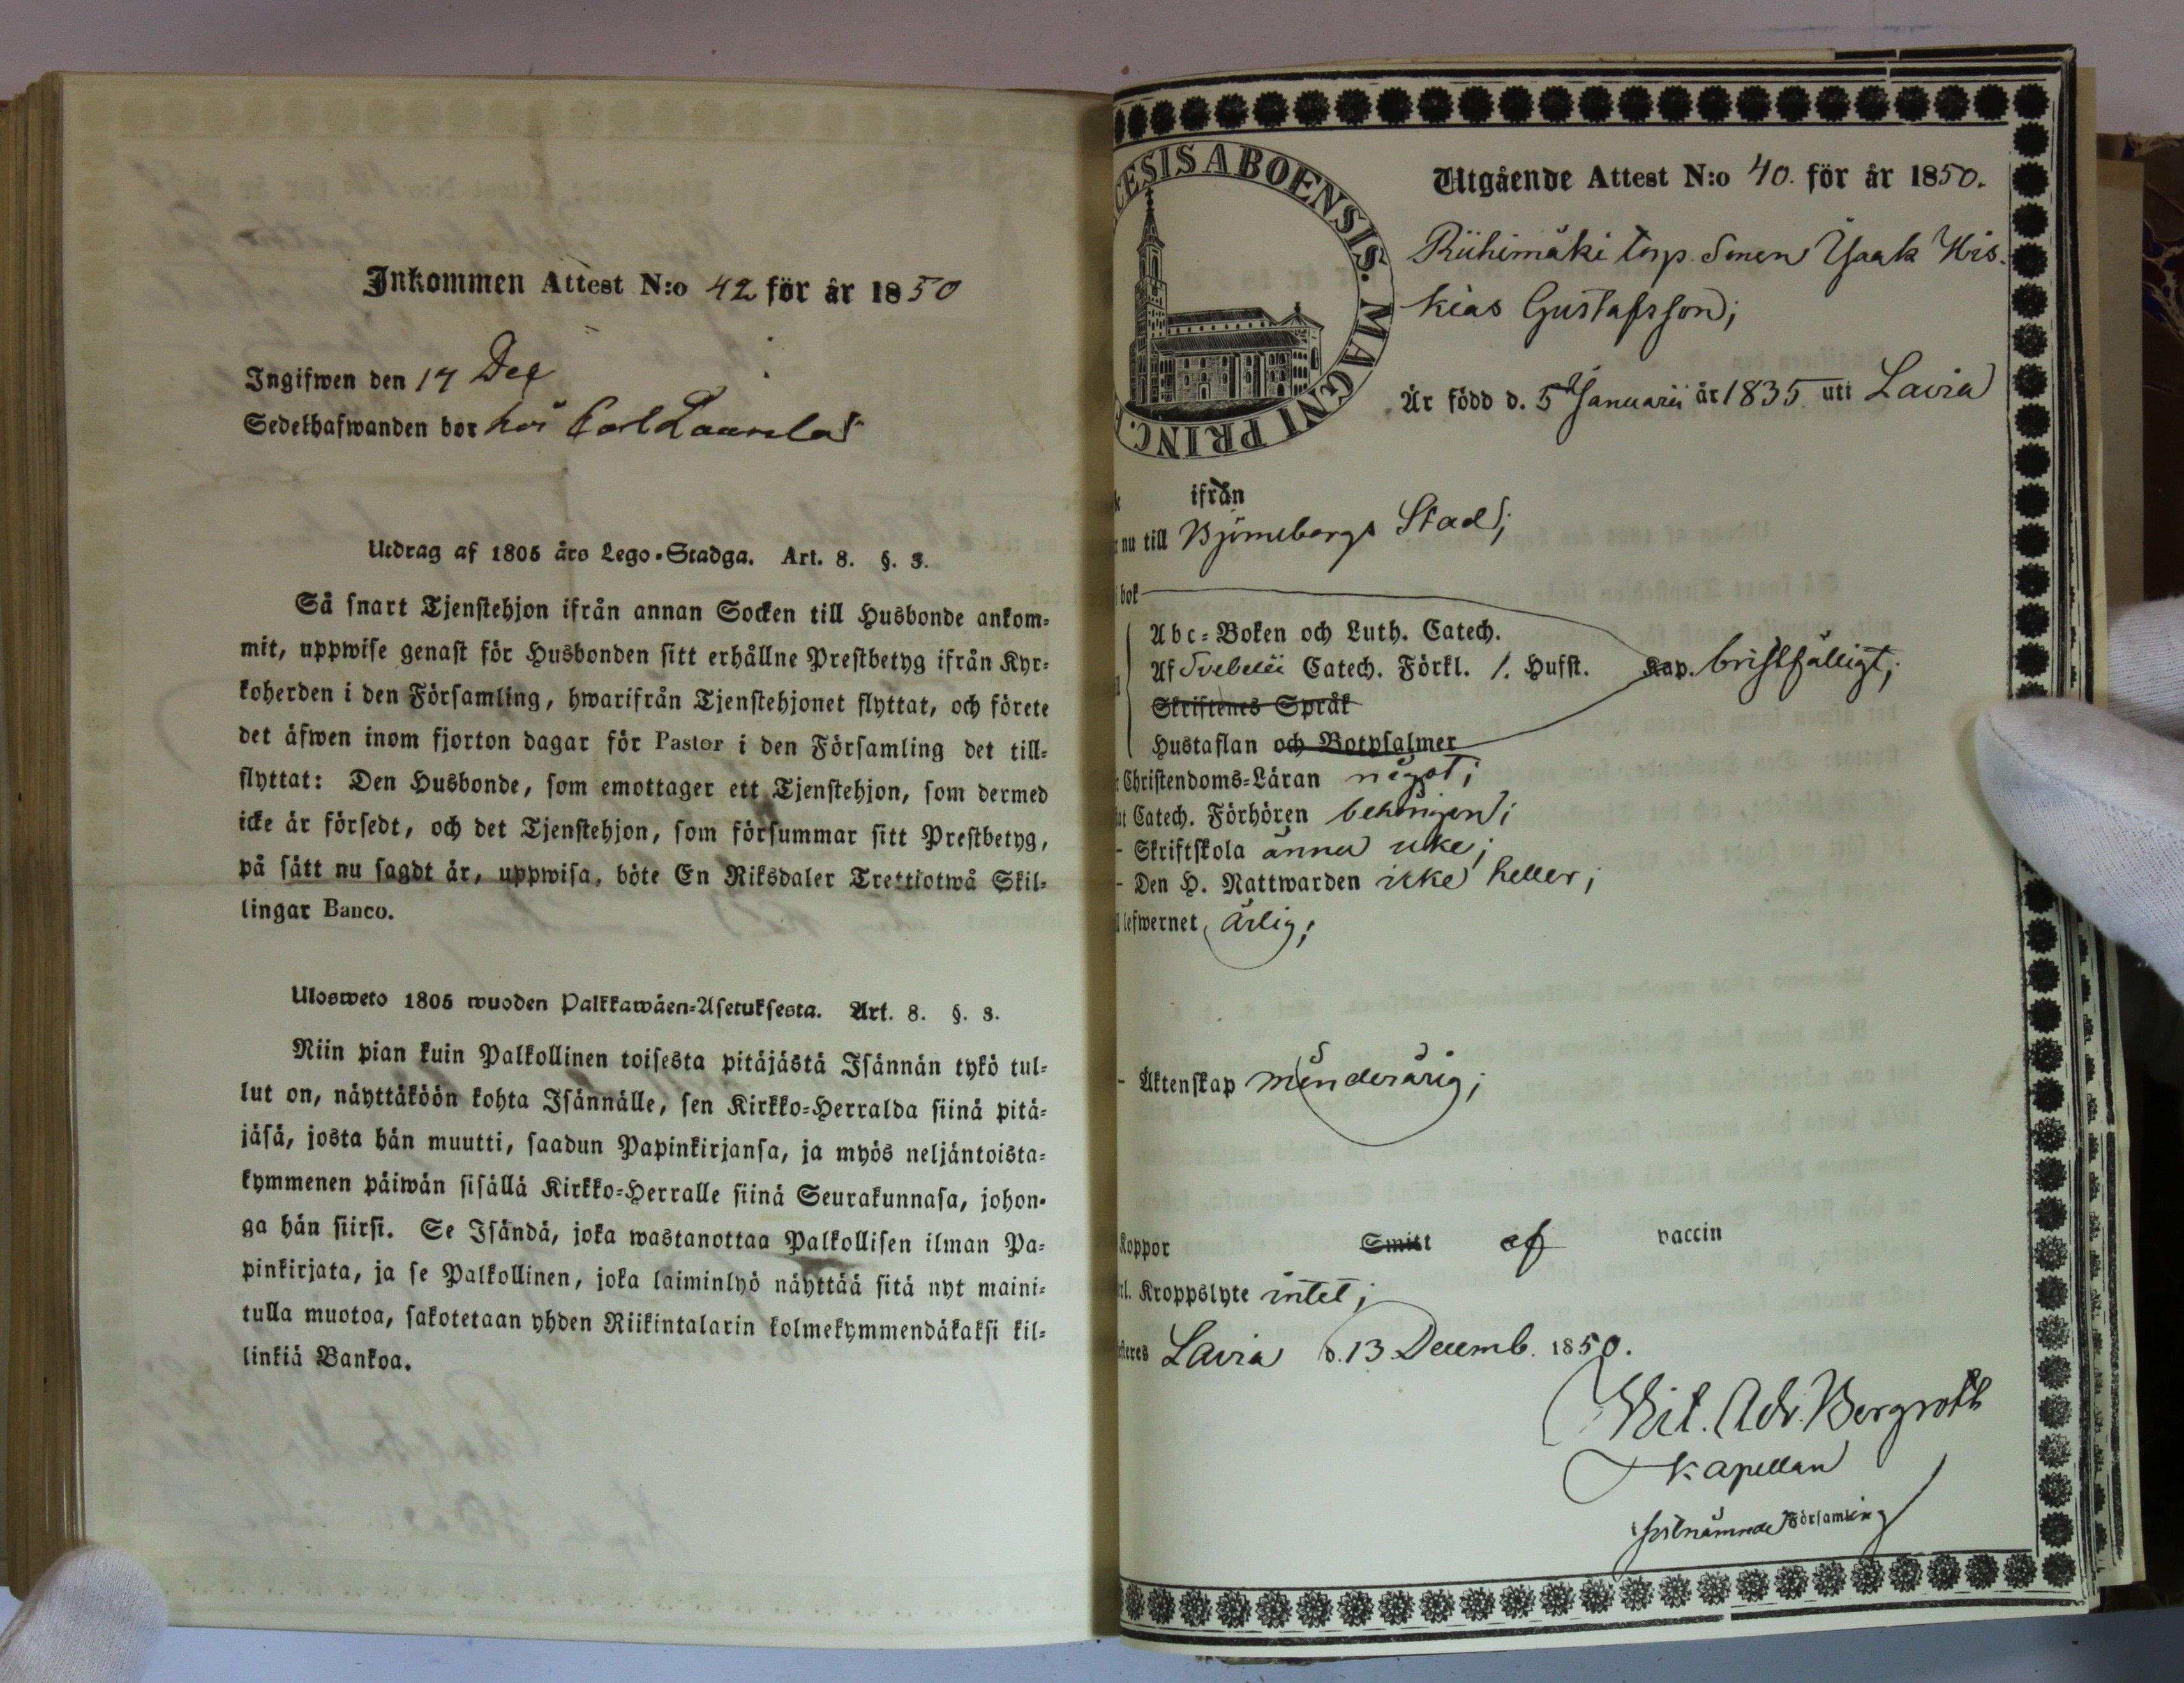 Inkommen Attest N:o 42 för år 1850
Ingifwen den 17 Dec
Sedelhafwanden bor hos Carl
Utdrag af 1805 års Lego-Stadga. Art. 8. §. 3.
Så snart Tjenstehjon ifrån annan Socken till Husbonde ankom-
mit, uppwise genast för Husbonden sitt erhållne Prestbetyg ifrån Kyr-
koherden i den Församling, hwarifrån Tjenstehjonet flyttat, och förete
det äfwen inom fjorton dagar för Pastor i den Församling det till-
flyttat: Den Husbonde, som emottager ett Tjenstehjon, som dermed
icke är försedt, och det Tjenstehjon, som försummar sitt Prestbetyg,
på sätt nu sagdt är, uppwisa, böte En Riksdaler Trettiotwå Skil-
lingar Banco.
Ulosweto 1805 wuoden Palkkawäen-Asetuksesta. Art. 8. §. 3.
Niin pian kuin Palkollinen toisesta pitäjästä Isännän tykö tul-
lut on, näyttäköön kohta Isännälle, sen Kirkko-Herralda siinä pitä-
jäsä, josta hän muutti, saadun Papinkirjansa, ja myös neljäntoista-
kymmenen päiwän sisällä Kirkko-Herralle siinä Seurakunnasa, johon-
ga hän siirsi. Se Isändä, joka wastanottaa Palkollisen ilman Pa-
pinkirjata, ja se Palkollinen, joka laiminlyö näyttää sitä nyt maini-
tulla muotoa, sakotetaan yhden Riikintalarin kolmekymmendäkaksi kil-
linkiä Bankoa.
CESIS ABOENSIS. MAGNI PRINC. F
Utgående Attest N:o 40. för år 1850.
Riihimäki torp. Sonen Isaak His-
kias Gustafsson;
Är född d. 5 Januarii år 1835. uti Lavia
ifrån
nu till Björneborgs Stad;
bok
Abc-Boken och Luth. Catech.
Af Svebelii Catech. Förkl. 1. Hufst. Kap. bristfälligt;
Skriftenes Språk
Hustaflan och Botpsalmer
Christendoms-Läran något;
Catech. Förhören behörigen;
- Skriftskola ännu icke;
- Den H. Nattwarden icke heller;
lefwernet ärlig;
- Äktenskap minderårig;
Koppor Smitt af vaccin
Kroppslyte intet;
Lavia d. 13 Decemb. 1850.
Wil. Adr. Bergroth
Kapellan
sistnämnde Församling